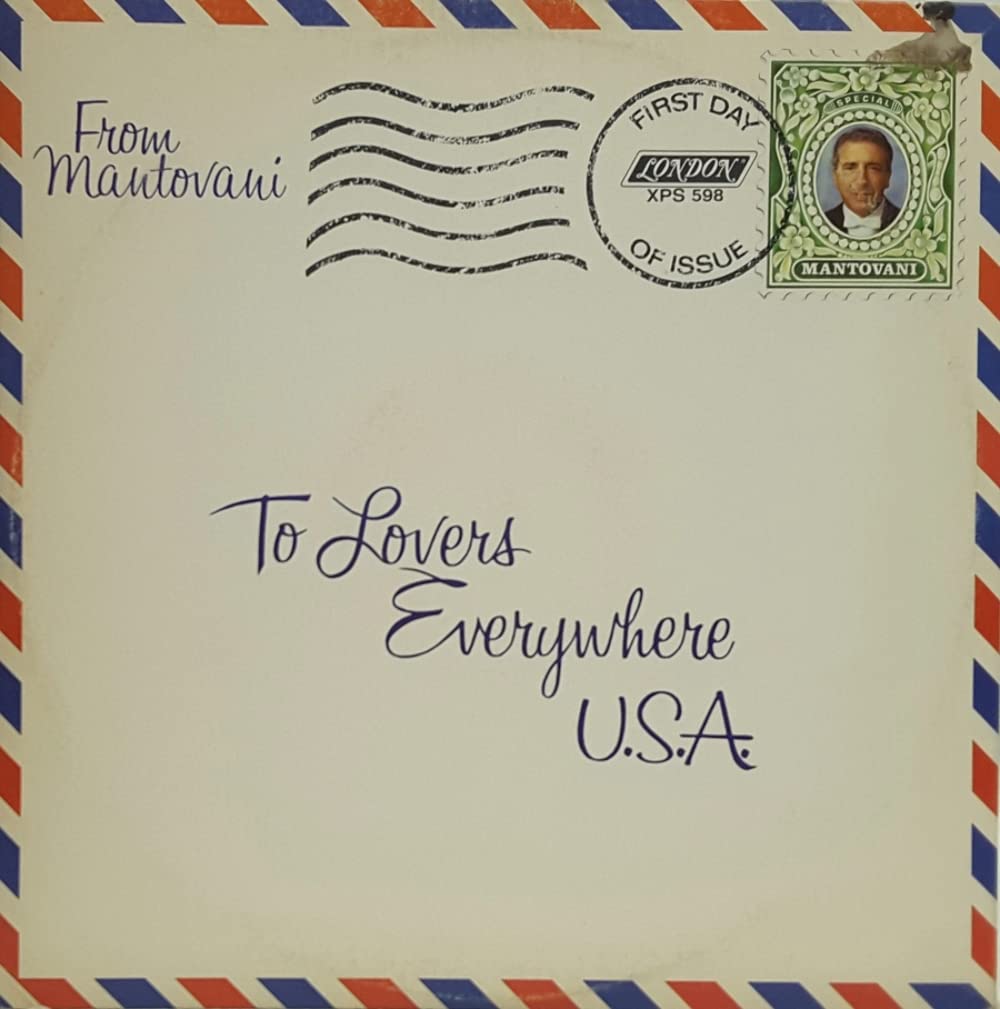 From
Mantovani
FIRST DAY
LONDON
XPS 598
OF ISSUE
SPECIAL
MANTOVANI
To Lovers
Everywhere
U.S.A.